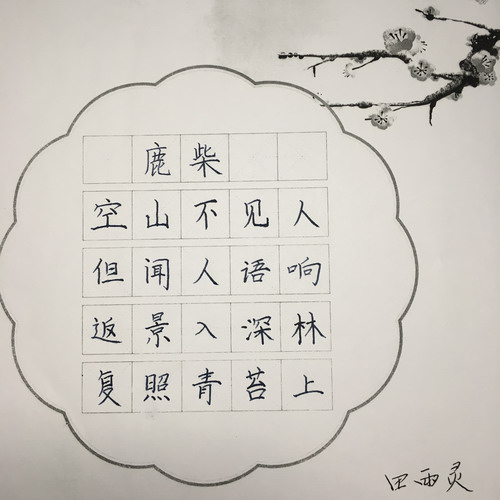 鹿柴
空山不见人
但闻人语响
返景入深林
复照青苔上
田雨灵